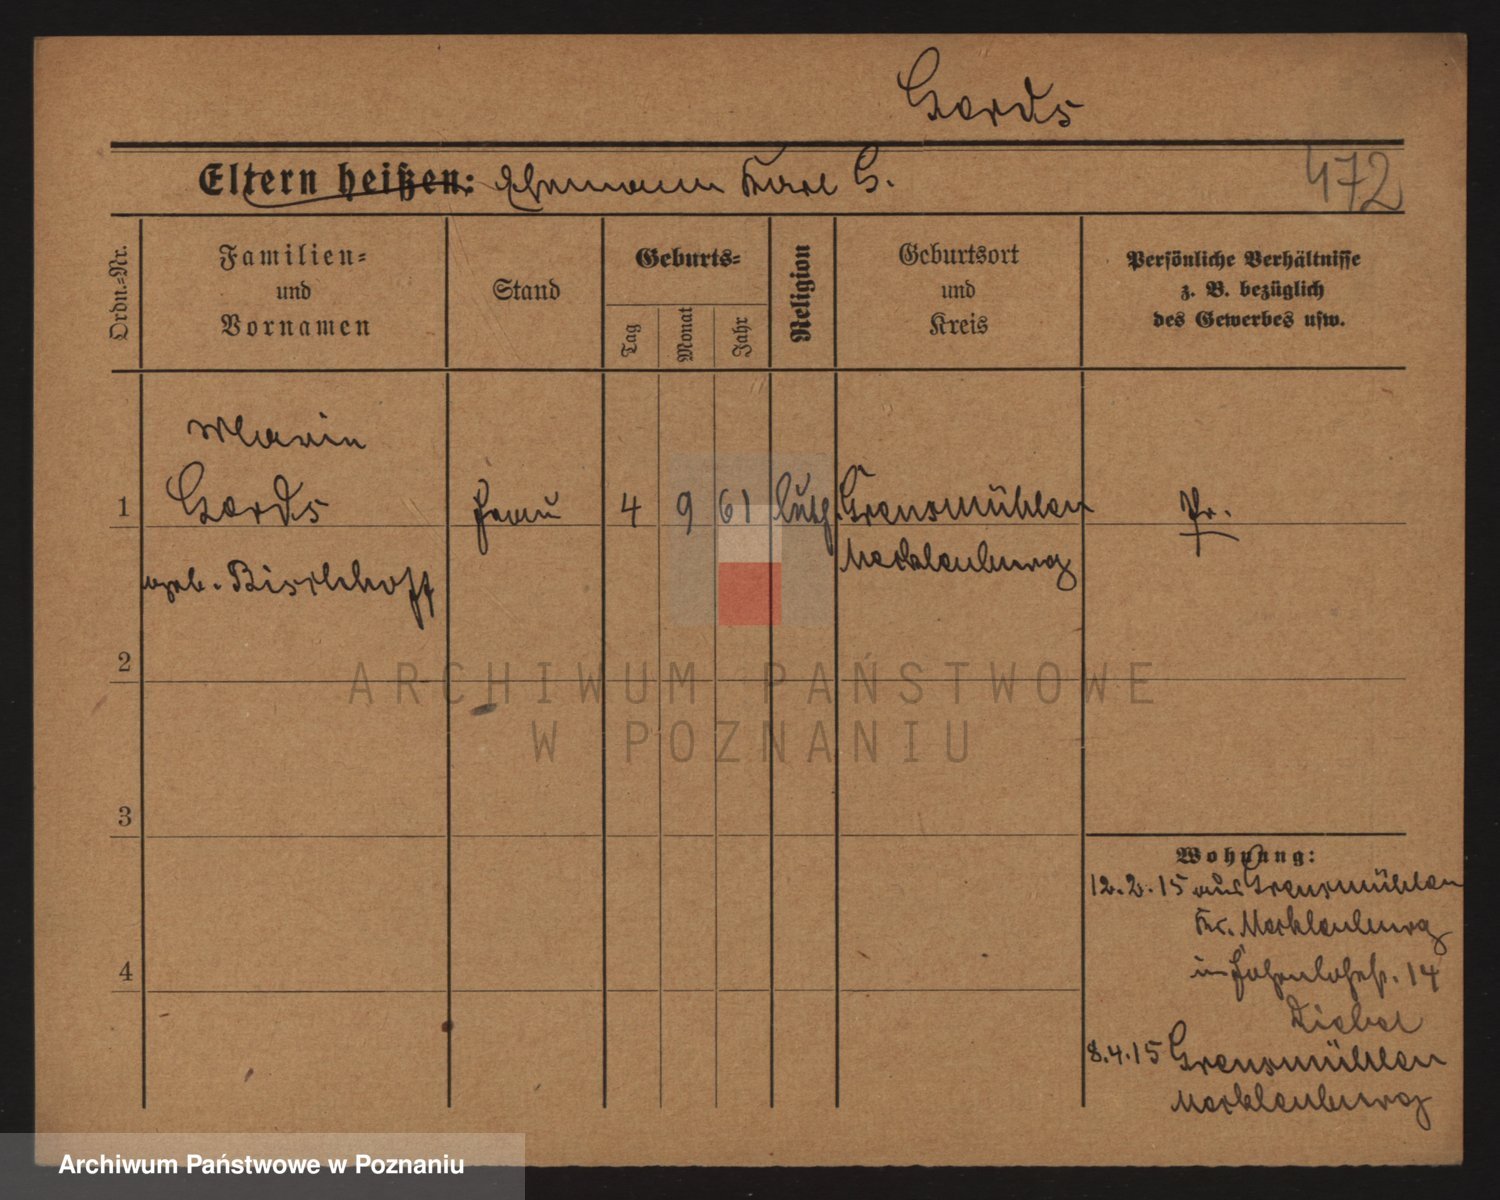 Gerds
Eltern heißen: Ehemann Karl G.
472
Ordn.=Nr.
Familien=
und
Vornamen
Stand
Geburts=
Tag
Monat
Jahr
Religion
Geburtsort
und
Kreis
Persönliche Verhältnisse
z. B. bezüglich
des Gewerbes usw.
Marie
1 Gerds Frau 4 9 61 luth. Grensmühlen Pr.
Mecklenburg
geb. Bischhoff
2
3
4
Wohnung:
12.2.15 aus Grensmühlen
Kr. Mecklenburg
in Hohenlohestr. 14
8.4.15 Grensmühlen
Mecklenburg
ARCHIWUM PAŃSTWOWE
W POZNANIU
Archiwum Państwowe w Poznaniu